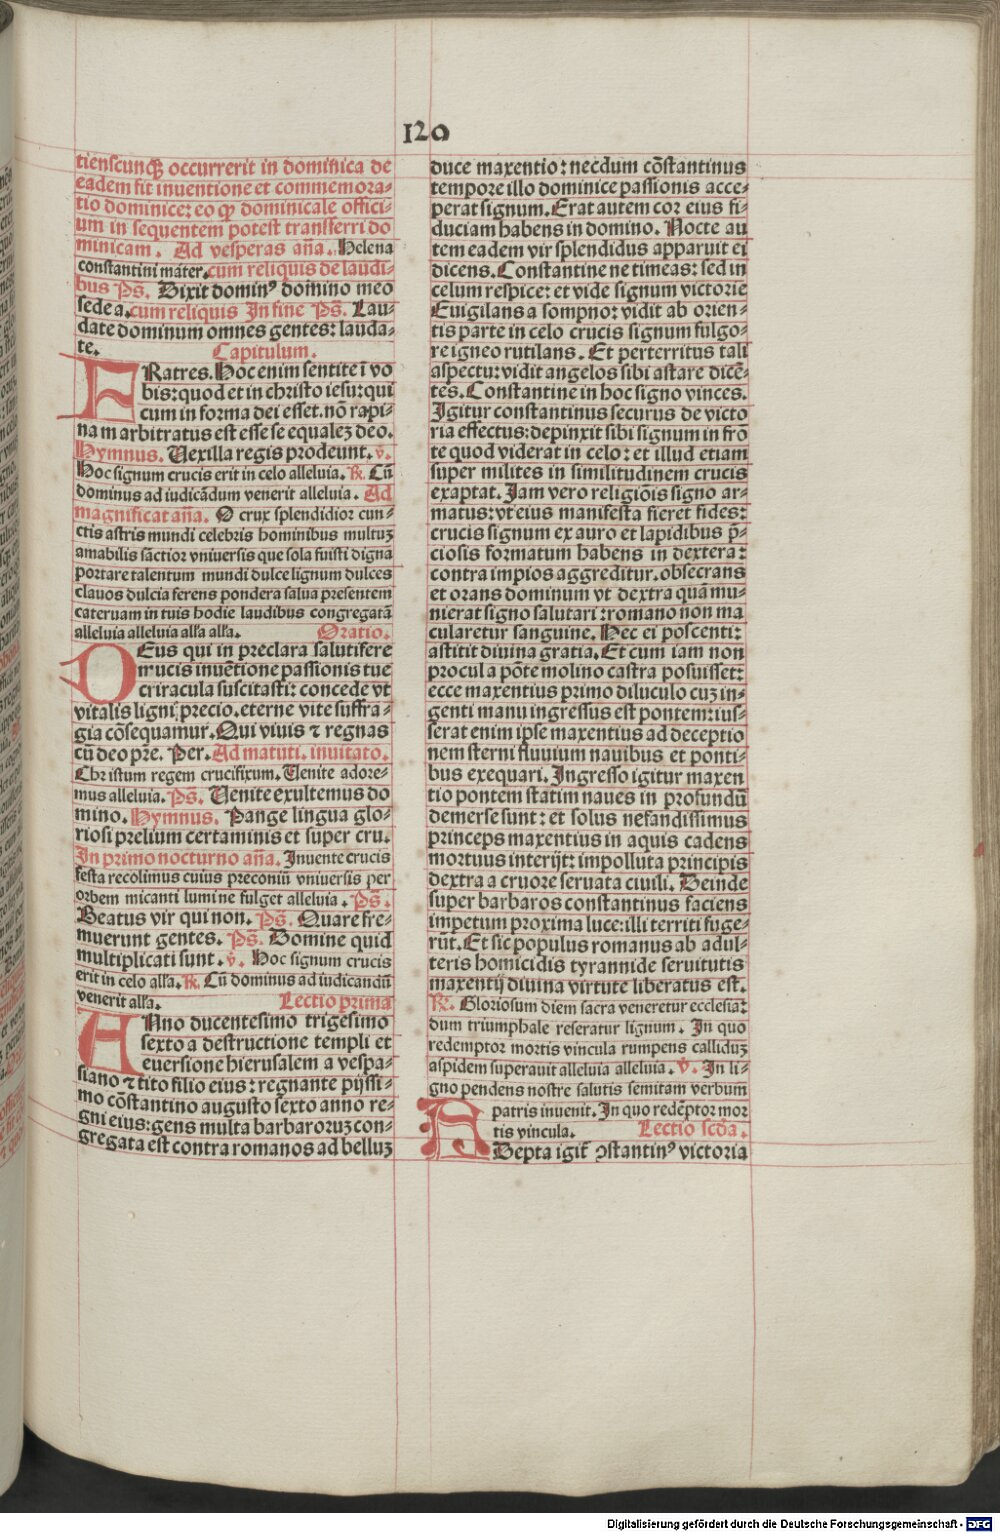 120
tienscunqȝ occurrerit in dominica de
eadem fit inuentione et commemora-
tio dominice: eo ꝙ dominicale offici-
um in sequentem potest transferri do
minicam. Ad vesperas an̄a. Helena
constantini mater. cum reliquis de laudi-
bus Ps̄. Dixit dominꝰ domino meo
sede a. cum reliquis In fine Ps̄. Lau-
date dominum omnes gentes: lauda-
te. Capitulum.
FRatres. Hoc enim sentite ī vo
bis: quod et in christo iesu: qui
cum in forma dei esset. nō rapi-
nam arbitratus est esse se equaleȝ deo.
Hymnus. Vexilla regis prodeunt. v̄.
Hoc signum crucis erit in celo alleluia. R̄. Cū
dominus ad iudicādum venerit alleluia. Ad
magnificat an̄a. O crux splendidior cun-
ctis astris mundi celebris hominibus multuȝ
amabilis sāctior vniuersis que sola fuisti digna
portare talentum mundi dulce lignum dulces
clauos dulcia ferens pondera salua presentem
cateruam in tuis hodie laudibus congregatā
alleluia alleluia all'a all'a. Oratio.
DEus qui in preclara salutifere
mrucis inuētione passionis tue
criracula suscitasti: concede vt
vitalis ligni precio. eterne vite suffra-
gia cōsequamur. Qui viuis ⁊ regnas
cū deo pr̄e. Per. Ad matuti. inuitato.
Christum regem crucifixum. Venite adore-
mus alleluia. Ps̄. Venite exultemus do
mino. Hymnus. Pange lingua glo-
riosi prelium certaminis et super cru.
In primo nocturno an̄a. Inuente crucis
festa recolimus cuius preconiū vniuersis per
orbem micanti lumine fulget alleluia. Ps̄.
Beatus vir qui non. Ps̄. Quare fre-
muerunt gentes. Ps̄. Domine quid
multiplicati sunt. v̄. Hoc signum crucis
erit in celo all'a. R̄. Cū dominus ad iudicandū
venerit all'a. Lectio prima
ANno ducentesimo trigesimo
sexto a destructione templi et
euersione hierusalem a vespa-
siano ⁊ tito filio eius: regnante pijssi-
mo cōstantino augusto sexto anno re-
gni eius: gens multa barbaroruȝ con-
gregata est contra romanos ad belluȝ
duce maxentio: necdum cōstantinus
tempore illo dominice passionis acce-
perat signum. Erat autem cor eius fi-
duciam habens in domino. Nocte au
tem eadem vir splendidus apparuit ei
dicens. Constantine ne timeas: sed in
celum respice: et vide signum victorie
Euigilans a sompno: vidit ab orien-
tis parte in celo crucis signum fulgo-
re igneo rutilans. Et perterritus tali
aspectu: vidit angelos sibi astare dicē-
tes. Constantine in hoc signo vinces.
Igitur constantinus securus de victo
ria effectus: depinxit sibi signum in frō
te quod viderat in celo: et illud etiam
super milites in similitudinem crucis
exaptat. Jam vero religiōis signo ar-
matus: vt eius manifesta fieret fides:
crucis signum ex auro et lapidibus p̄-
ciosis formatum habens in dextera:
contra impios aggreditur. obsecrans
et orans dominum vt dextra quā mu-
nierat signo salutari: romano non ma
cularetur sanguine. Nec ei poscenti:
astitit diuina gratia. Et cum iam non
procul a pōte molino castra posuisset:
ecce maxentius primo diluculo cuȝ in-
genti manu ingressus est pontem: ius-
serat enim ipse maxentius ad deceptio
nem sterni fluuium nauibus et ponti-
bus exequari. Ingresso igitur maxen
tio pontem statim naues in profundū
demerse sunt: et solus nefandissimus
princeps maxentius in aquis cadens
mortuus interijt: impolluta principis
dextra a cruore seruata ciuili. Deinde
super barbaros constantinus faciens
impetum proxima luce: illi territi fuge-
rūt. Et sic populus romanus ab adul-
teris homicidis tyrannide seruitutis
maxentij diuina virtute liberatus est.
R̄. Gloriosum diem sacra veneretur ecclesia:
dum triumphale reseratur lignum. In quo
redemptor mortis vincula rumpens calliduȝ
aspidem superauit alleluia alleluia. v̄. In li-
gno pendens nostre salutis semitam verbum
patris inuenit. In quo redēptor mor
tis vincula. Lectio scd̄a.
ADepta igit̄ ↄstantinꝰ victoria
Digitalisierung gefördert durch die Deutsche Forschungsgemeinschaft - DFG